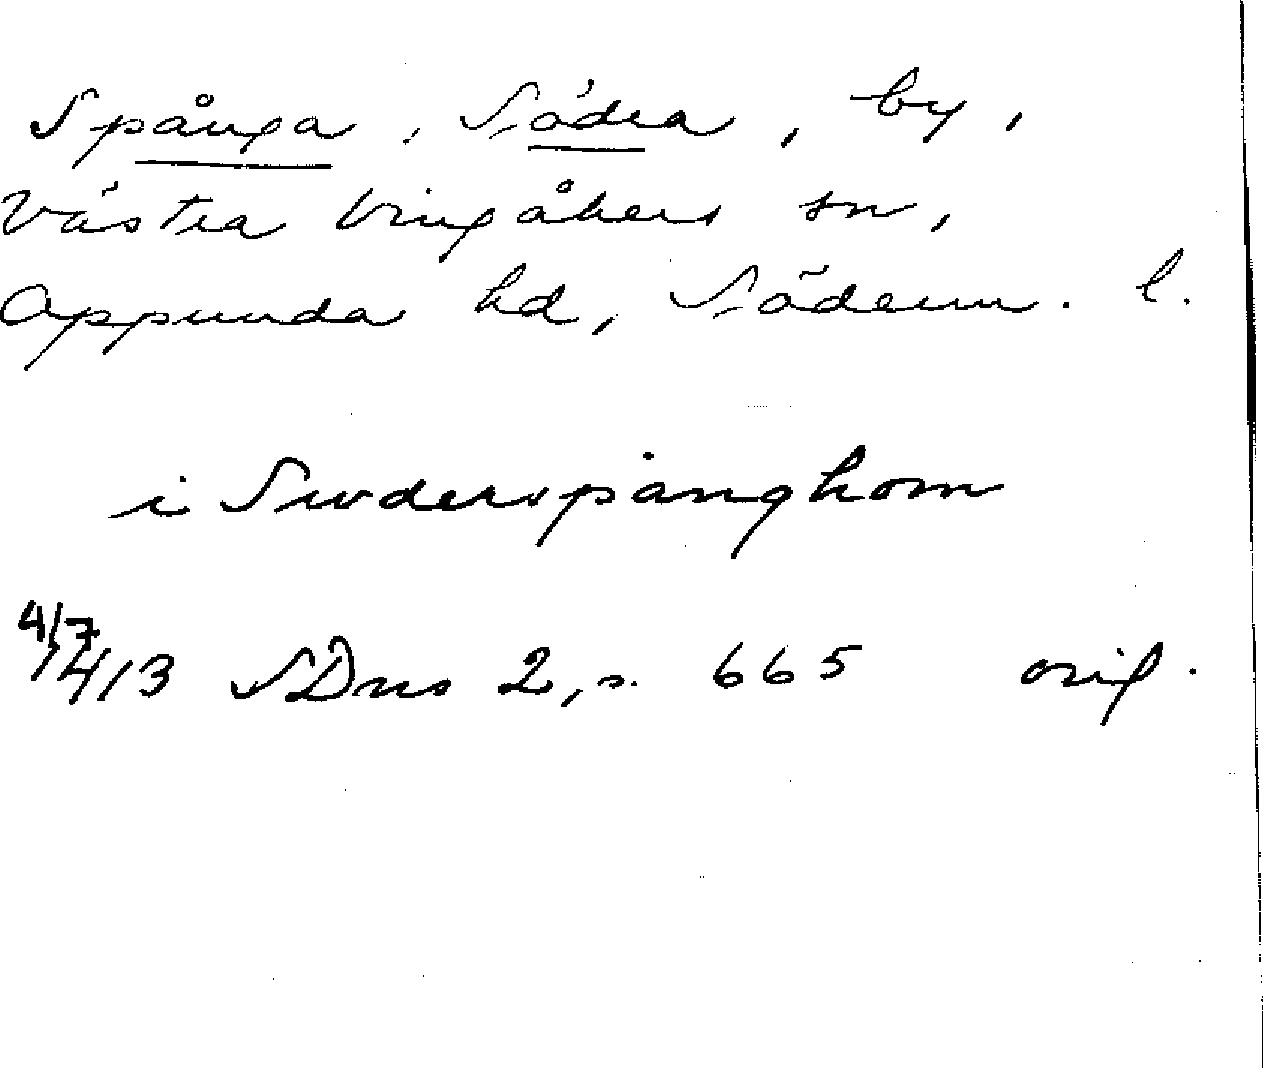 Spånga, Södra, by,
Västra Vingåkers sn,
Oppunda hd, Söderm. l.
i Swderspanghom
4/7 1413 SDns 2, s. 665 orig.